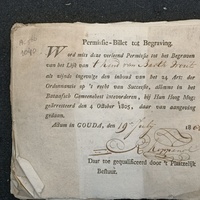 Permissie-Billet tot Begraving.
Word mits deze verleend Permissie tot het Begraven
van het Lijk van 't Kind van
als zijnde ingevolge den inhoud van het 24 Art: der
Ordonnantie op 't regt van Successie, alleen in het
Bataafsch Gemeenebest intevorderen, bij Hun Hoog Mog:
gearresteerd den 4 Oktober 1805, daar van aangeving
gedaan.
Actum in GOUDA, den 19e July 180
Daar toe gequalificeerd door 't Plaatselijk
Bestuur.